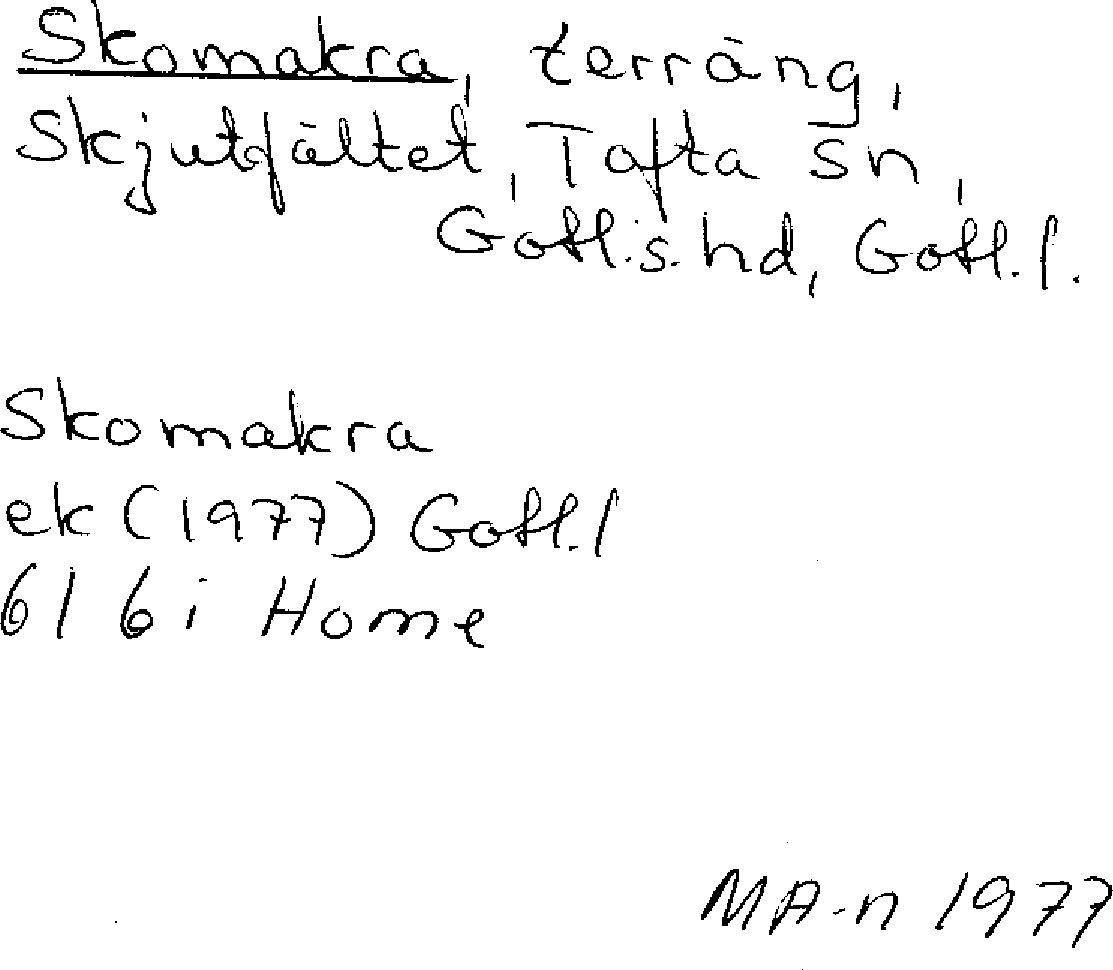 Skomakra, terräng,
Skjutfältet, Tofta sn,
Gotl.s. hd, Gotl. l.
Skomakra
ek (1977) Gotl. l
6I 6i Home
MA-n 1977